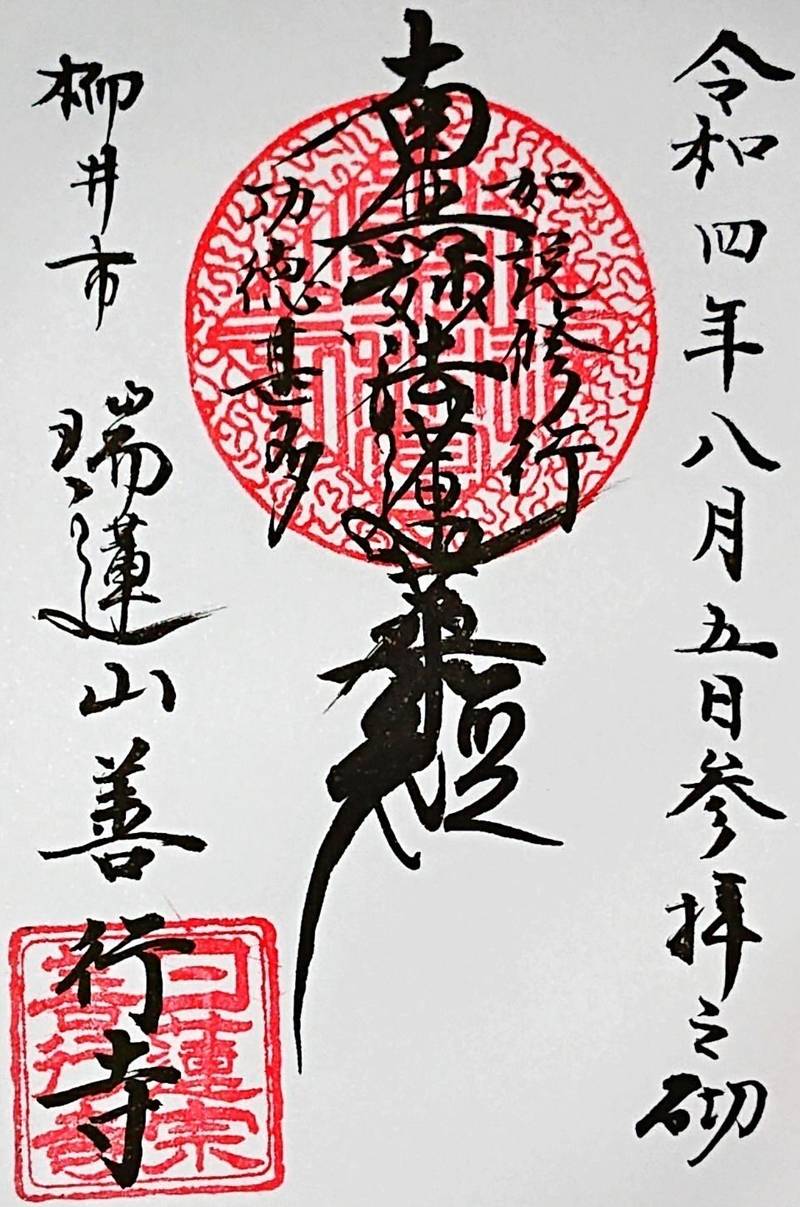 令和四年八月五日参拝之砌
如説修行
南無妙法蓮華経
功徳甚多
柳井市 瑞蓮山善行寺
日蓮宗
善行寺